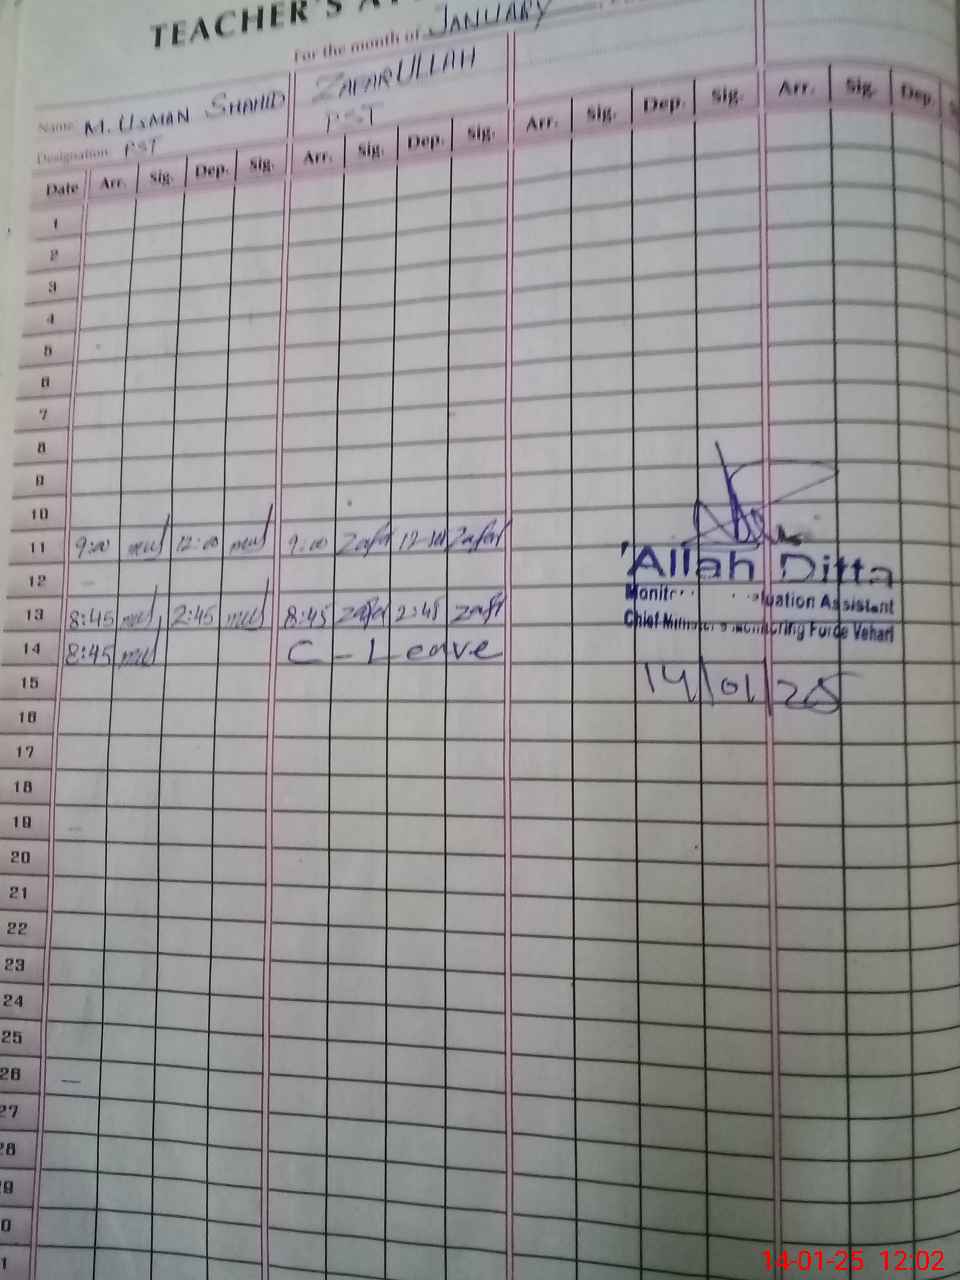 TEACHER'S
For the month of JANUARY
Name M. USMAN SHAHID ZAFARULLAH
Designation PST PST
Date Arr. Sig. Dep. Sig. Arr. Sig. Dep. Sig. Arr. Sig. Dep. Sig. Arr. Sig. Dep.
1
2
3
4
5
6
7
8
9
10
11 9:00 12:00 9:00 Zafar Zafar
12
13 8:45 2:45 8:45 Zafar 2:45 Zafar
14 8:45 C - Leave
15
16
17
18
19
20
21
22
23
24
25
26
27
28
9
0
1
Allah Ditta
Monit uation Assistant
Chief Minister's Monitoring Force Vehari
14/01/25
14-01-25 12:02